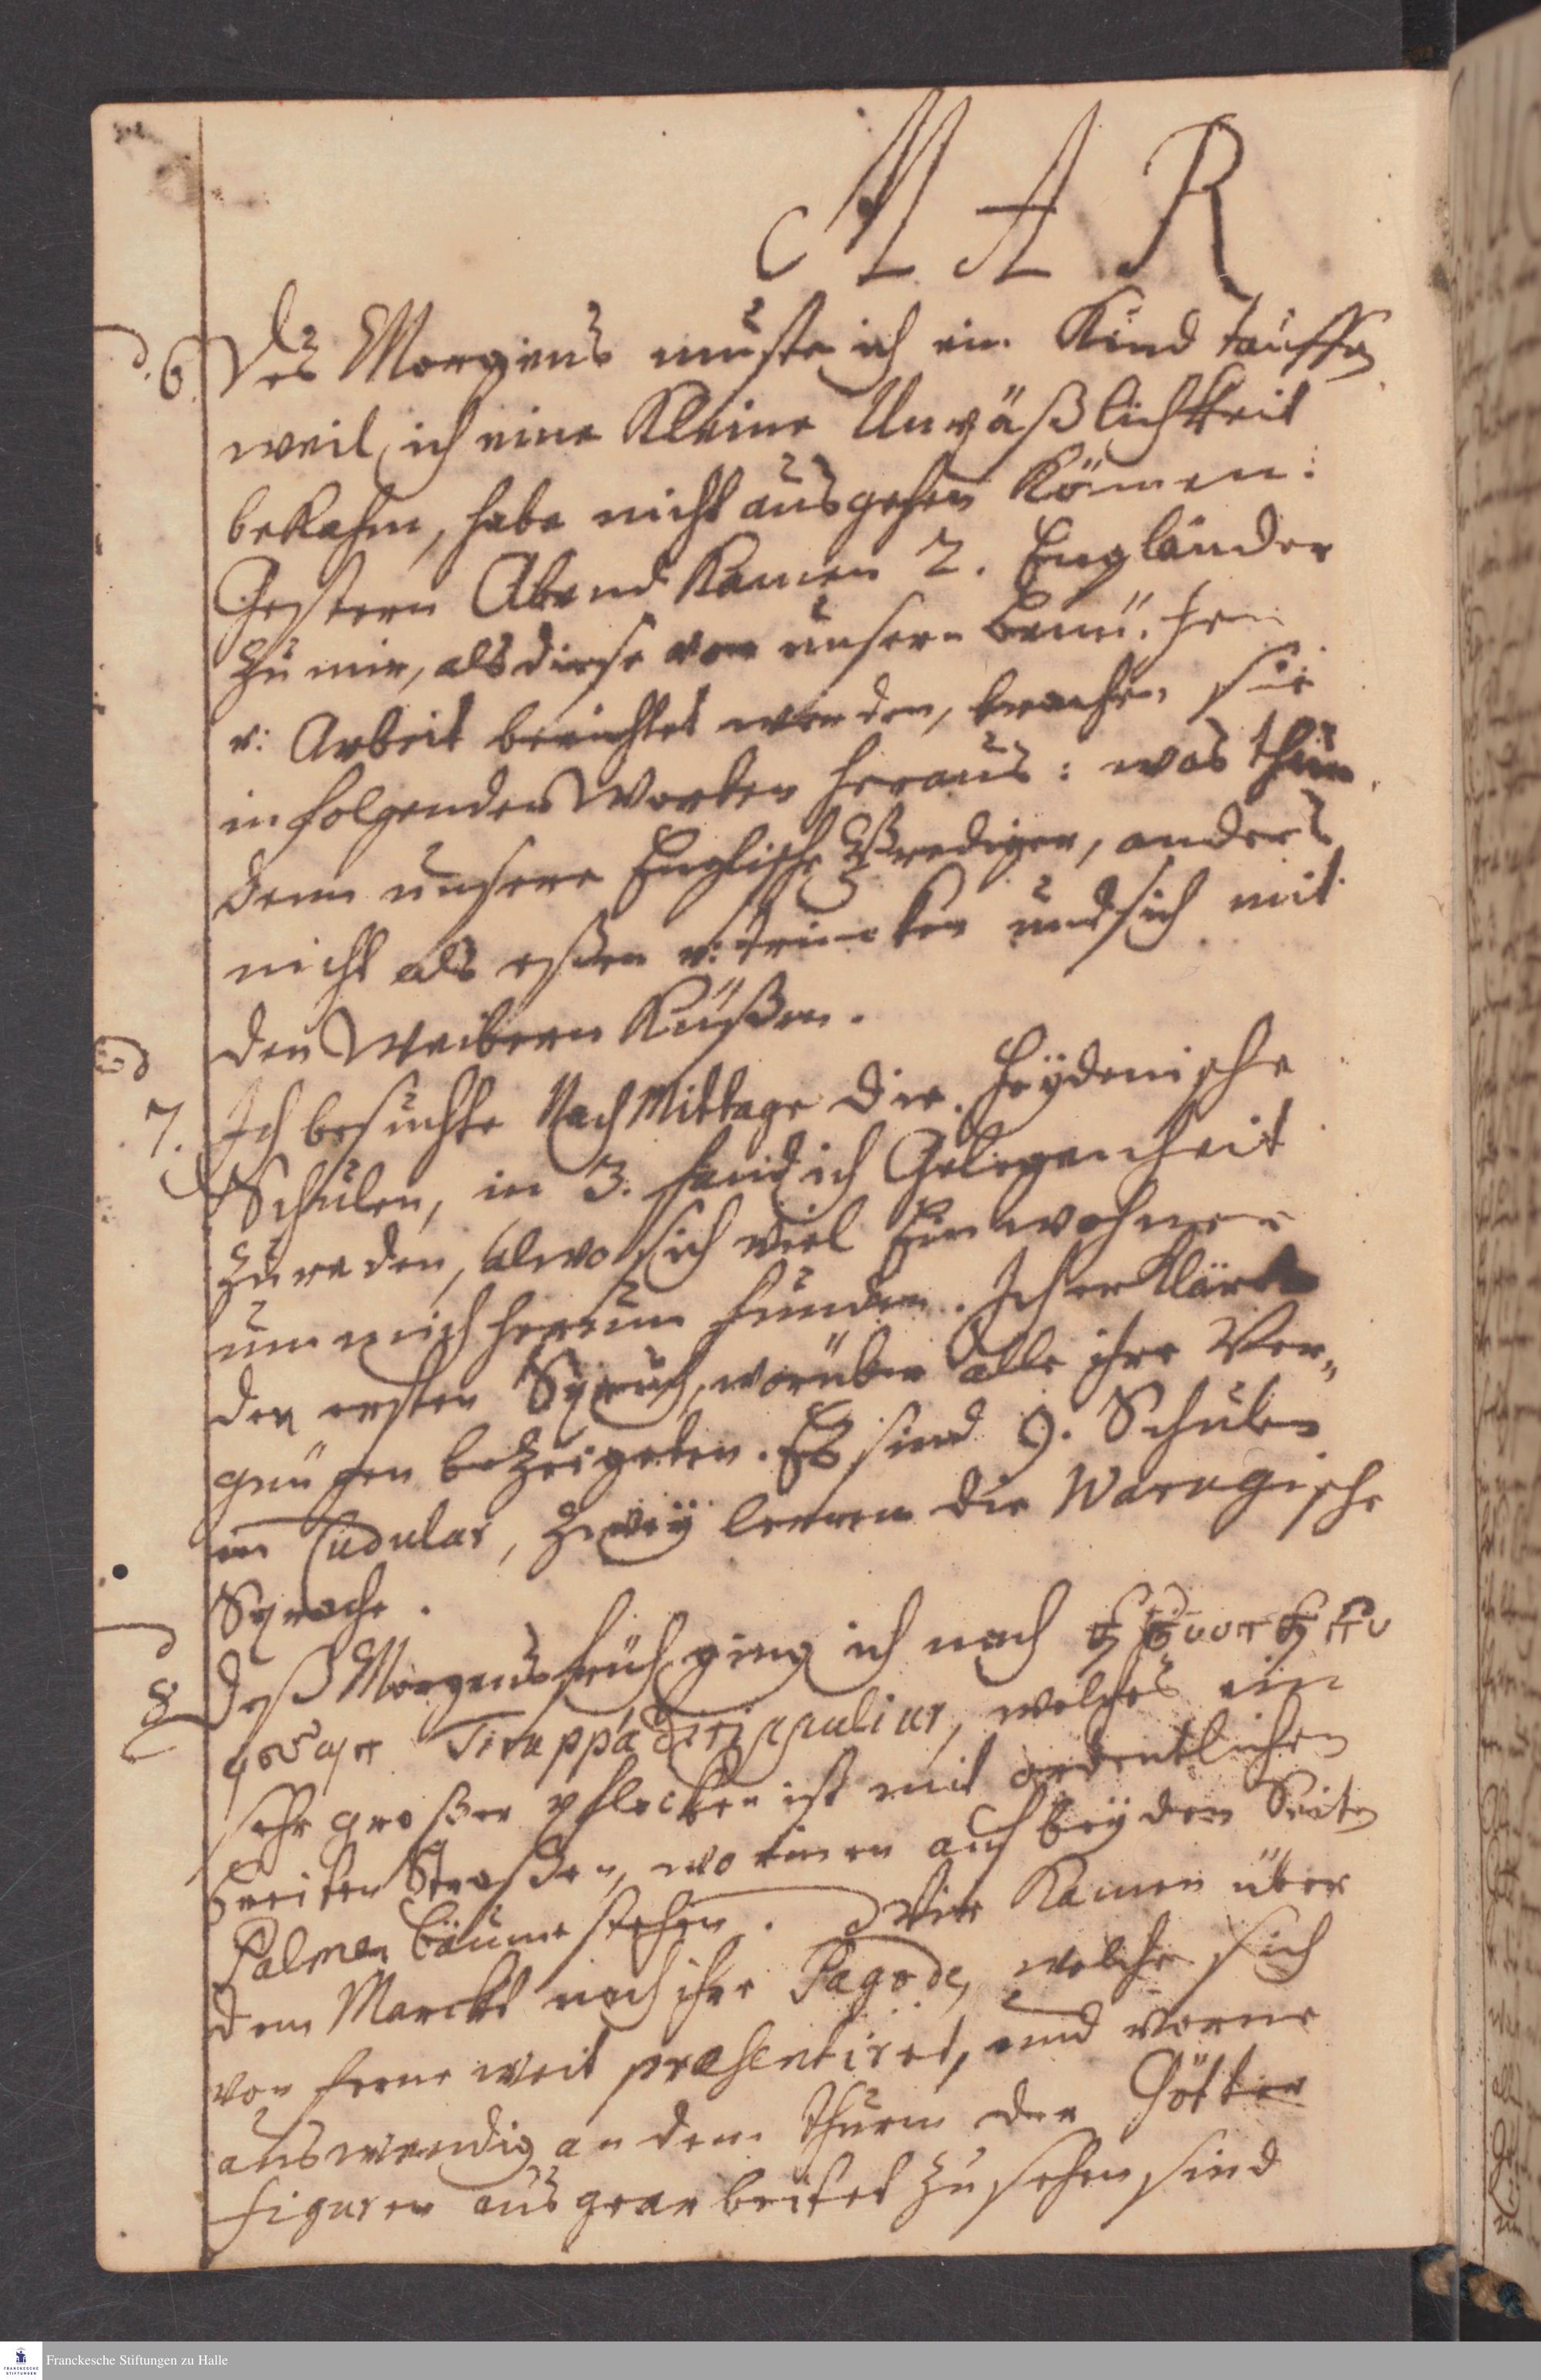 MAR
d. 6. Des Morgens muste ich ein Kind tauffen
weil ich eine Kleine Unpäßlichkeit
bekahm, habe nicht ausgehen können.
Gestern Abend kamen 2. Engländer
zu mir, als diese von unsern Bemühen
u: Arbeit berichtet worden, brachen sie
in folgenden Worten heraus: was thun
denn unsere Englische Prediger, anders
nicht als eßen u: trincken und sich mit
den Weibern Küßen.
7. Ich besuchte Nach Mittage die Heydenische
Schulen, in 3. fand ich Gelegenheit
zu reden, alwo sich viel Einwohner
um mich herum funden. Ich erklärte
den ersten Spruch, worüber alle ihre Ver„
gnügen bezeigeten. Es sind 9. Schulen
in Cudulur, zwey lernen die Warugische
Sprache.
8 Deß Morgens früh ging ich nach
Tiruppádirippuliur, welches ein
sehr großer Flecken ist mit ordentlichen
breiten Straßen, worinnen auf beyden Seiten
Palmen bäume stehen. Wir kamen über
dem Marckt nach ihre Pagode, welche sich
von ferne weit præsentiret, und vorne
auswendig an dem Thurm der Götter
figuren ausgearbeitet zu sehen sind
Franckesche Stiftungen zu Halle